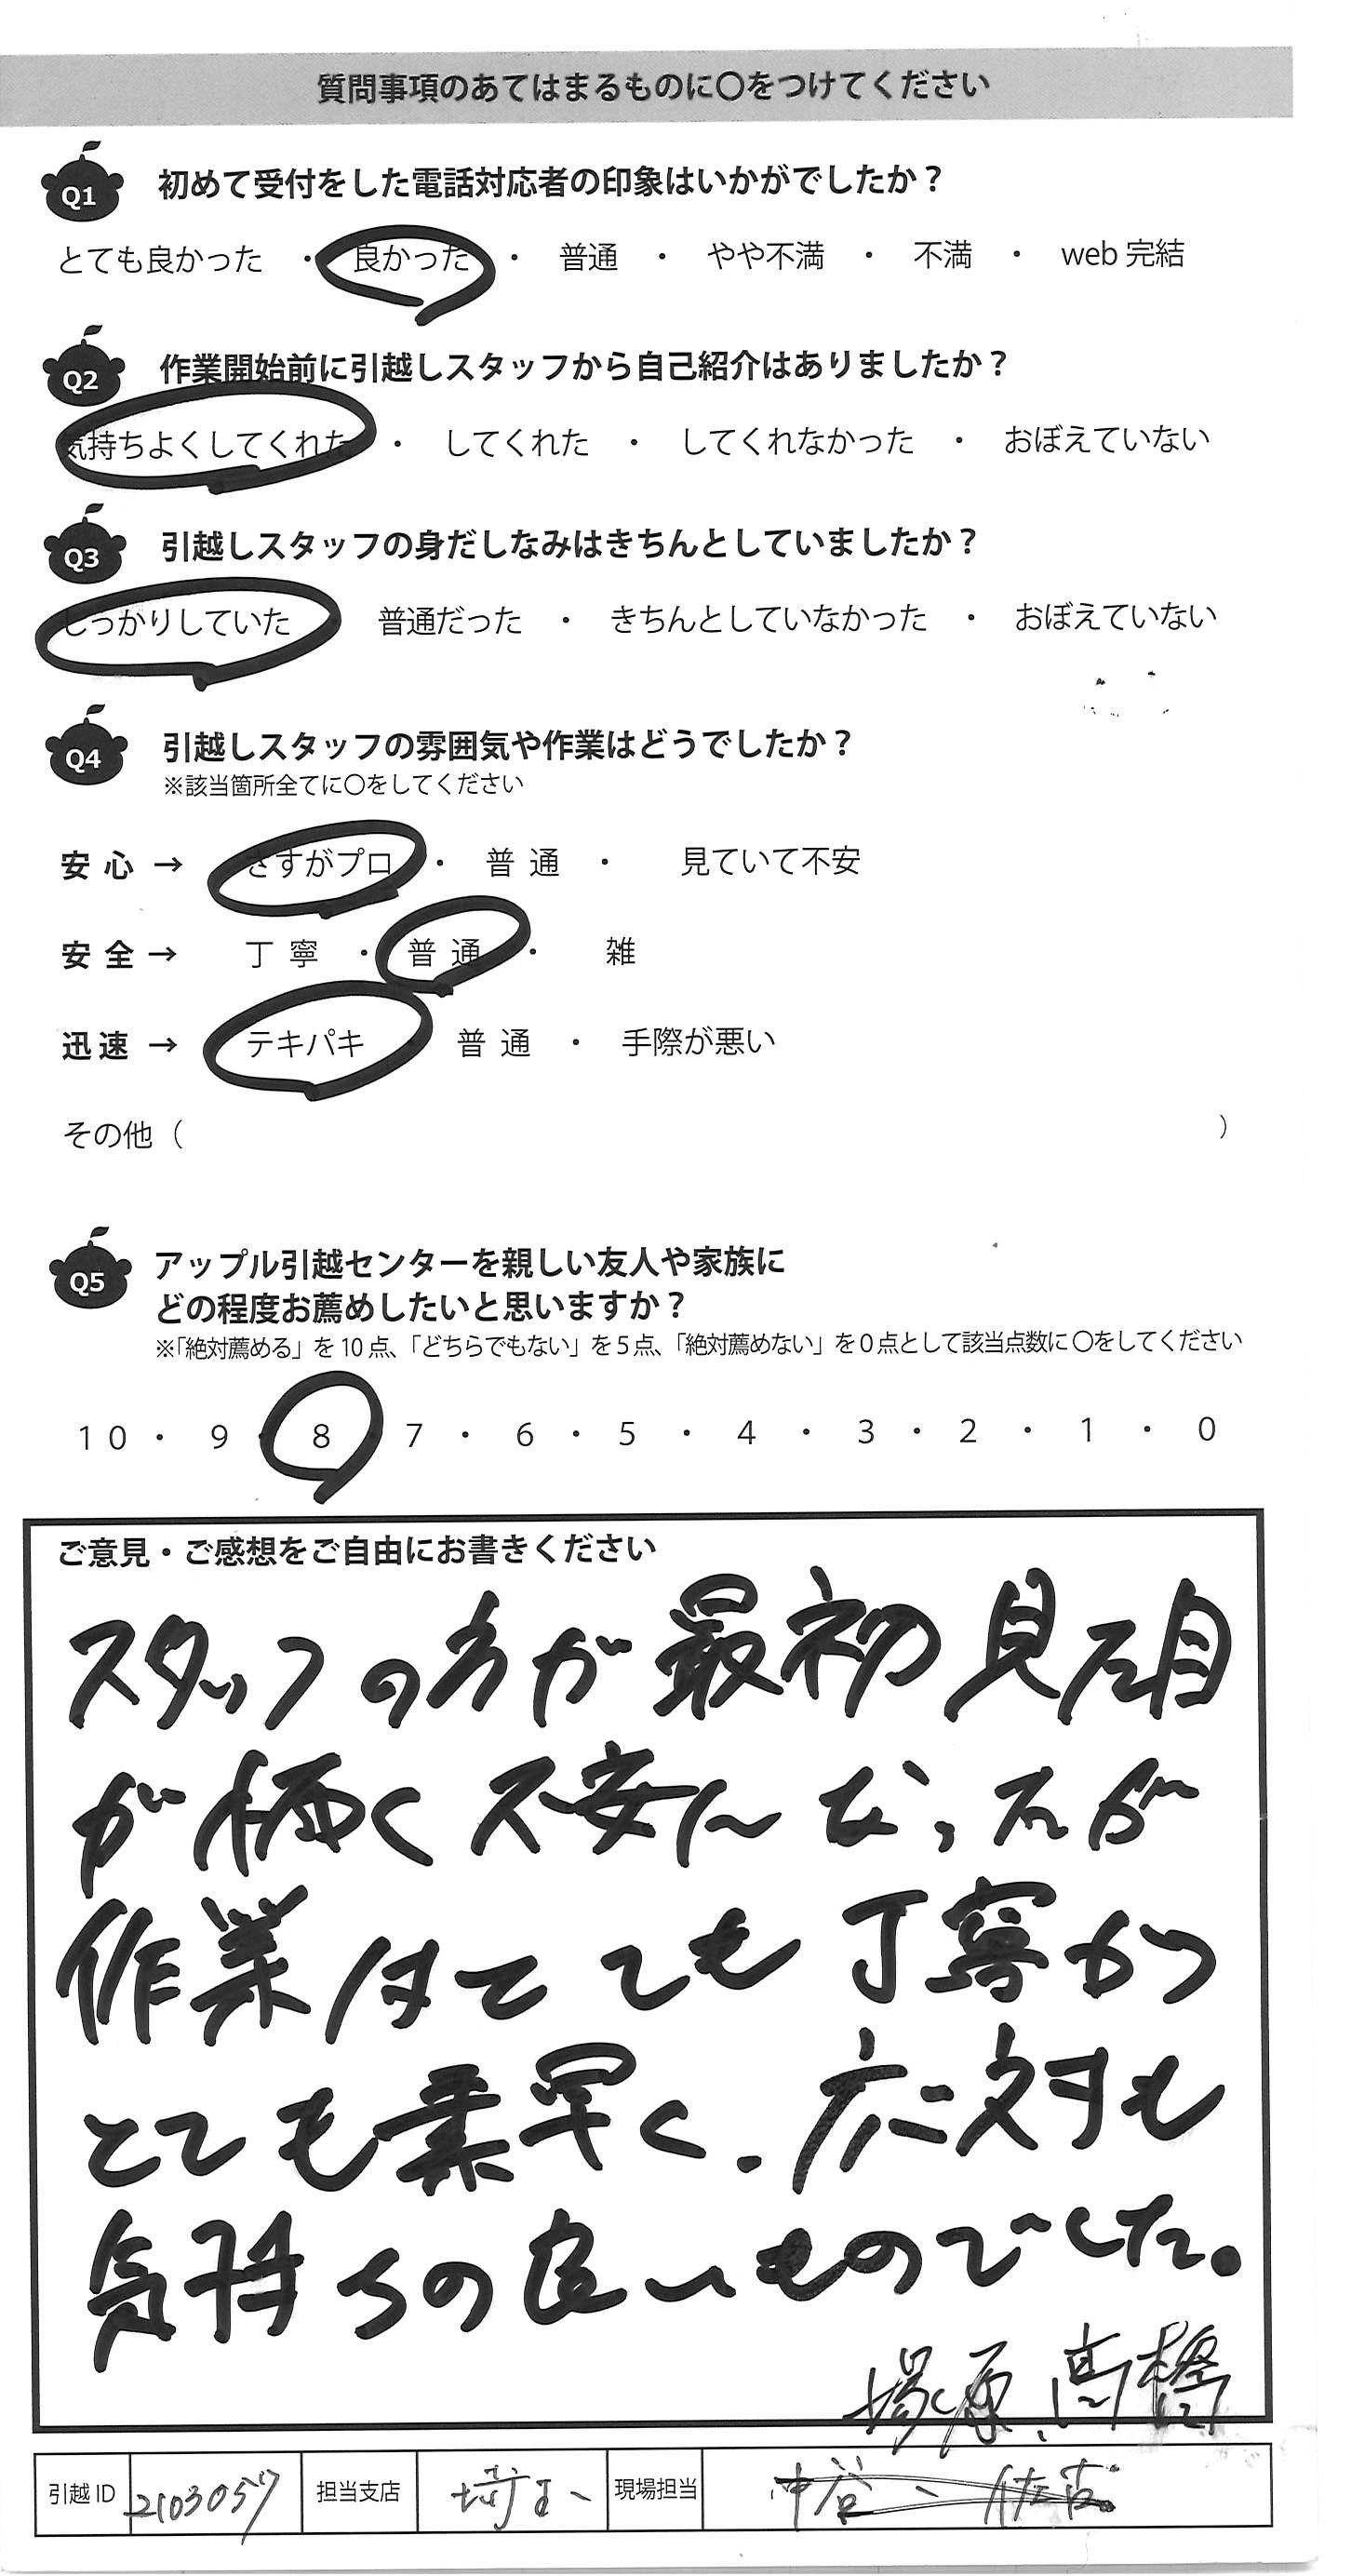 質問事項のあてはまるものに〇をつけてください
Q1 初めて受付をした電話対応者の印象はいかがでしたか？
とても良かった ・ 良かった ・ 普通 ・ やや不満 ・ 不満 ・ web 完結
Q2 作業開始前に引越しスタッフから自己紹介はありましたか？
気持ちよくしてくれた ・ してくれた ・ してくれなかった ・ おぼえていない
Q3 引越しスタッフの身だしなみはきちんとしていましたか？
しっかりしていた 普通だった ・ きちんとしていなかった ・ おぼえていない
Q4 引越しスタッフの雰囲気や作業はどうでしたか？
※該当箇所全てに〇をしてください
安心 → さすがプロ ・ 普通 ・ 見ていて不安
安全 → 丁寧 ・ 普通 ・ 雑
迅速 → テキパキ 普通 ・ 手際が悪い
その他（ ）
Q5 アップル引越センターを親しい友人や家族に
どの程度お薦めしたいと思いますか？
※「絶対薦める」を 10 点、「どちらでもない」を 5 点、「絶対薦めない」を 0 点として該当点数に 〇をしてください
10 ・ 9 8 7 ・ 6 ・ 5 ・ 4 ・ 3 ・ 2 ・ 1 ・ 0
ご意見・ご感想をご自由にお書きください
スタッフの方が最初見た目
が怖く不安になったが
作業はとても丁寧かつ
とても素早く、応対も
気持ちの良いものでした。
塚原、高橋
引越 ID 2103057 担当支店 埼玉 現場担当